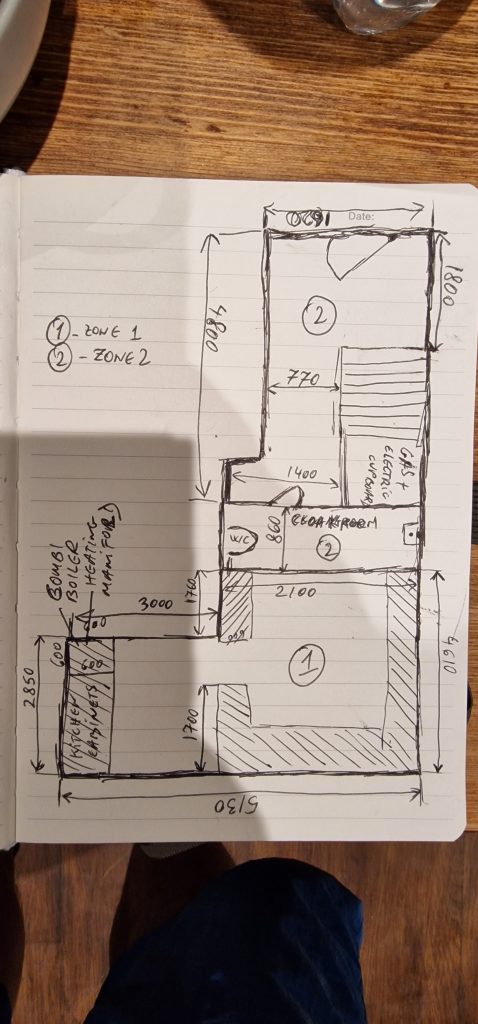 1620
Date:
1800
4800
① - ZONE 1
② - ZONE 2
②
770
GAS +
ELECTRIC
CUPBOARD
1400
CLOAKROOM
W/C
860
②
COMBI
BOILER
HEATING
MANIFOLD
3000
1760
2100
600
600
①
2850
KITCHEN
CABINETS
1700
4610
5130